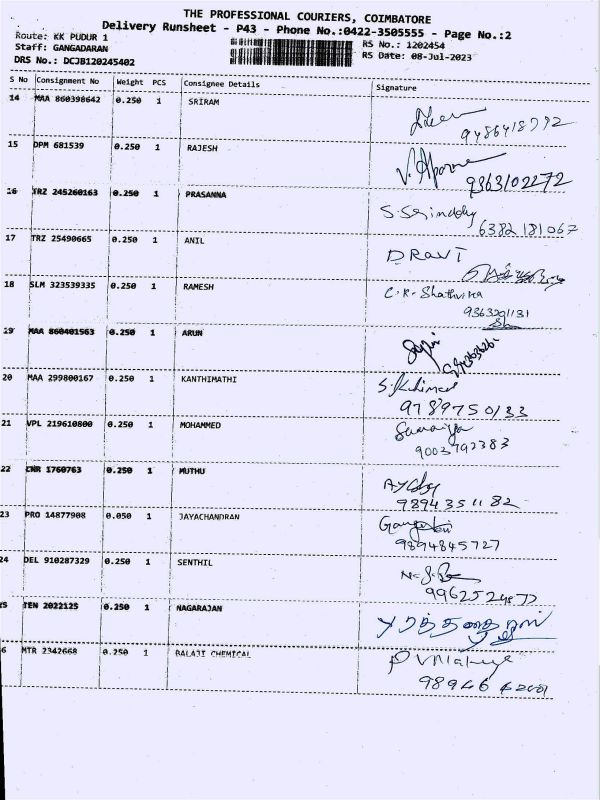 THE PROFESSIONAL COURIERS, COIMBATORE
Delivery Runsheet - P43 - Phone No.:0422-3505555 - Page No.:2
Route: KK PUDUR 1
RS No.: 1202454
Staff: GANGADARAN
RS Date: 08-Jul-2023
DRS No.: DCJB120245402
S No Consignment No Weight PCS Consignee Details Signature
14 MAA 860398642 0.250 1 SRIRAM
9486418792
15 DPM 681539 0.250 1 RAJESH
9363102272
16 TRZ 245260163 0.250 1 PRASANNA
6382 181067
17 TRZ 25490665 0.250 1 ANIL D RAVI
18 SLM 323539335 0.250 1 RAMESH C.R. Shathvika
9363201131
19 MAA 860401563 0.250 1 ARUN
20 MAA 299800167 0.250 1 KANTHIMATHI
9789750133
21 VPL 219610800 0.250 1 MOHAMMED
9003792383
22 CNR 1760763 0.250 1 MUTHU
9894351182
23 PRO 14877908 0.050 1 JAYACHANDRAN
9894845727
24 DEL 910287329 0.250 1 SENTHIL
25 TEN 2022125 0.250 1 NAGARAJAN
26 MTR 2342668 0.250 1 BALAJI CHEMICAL